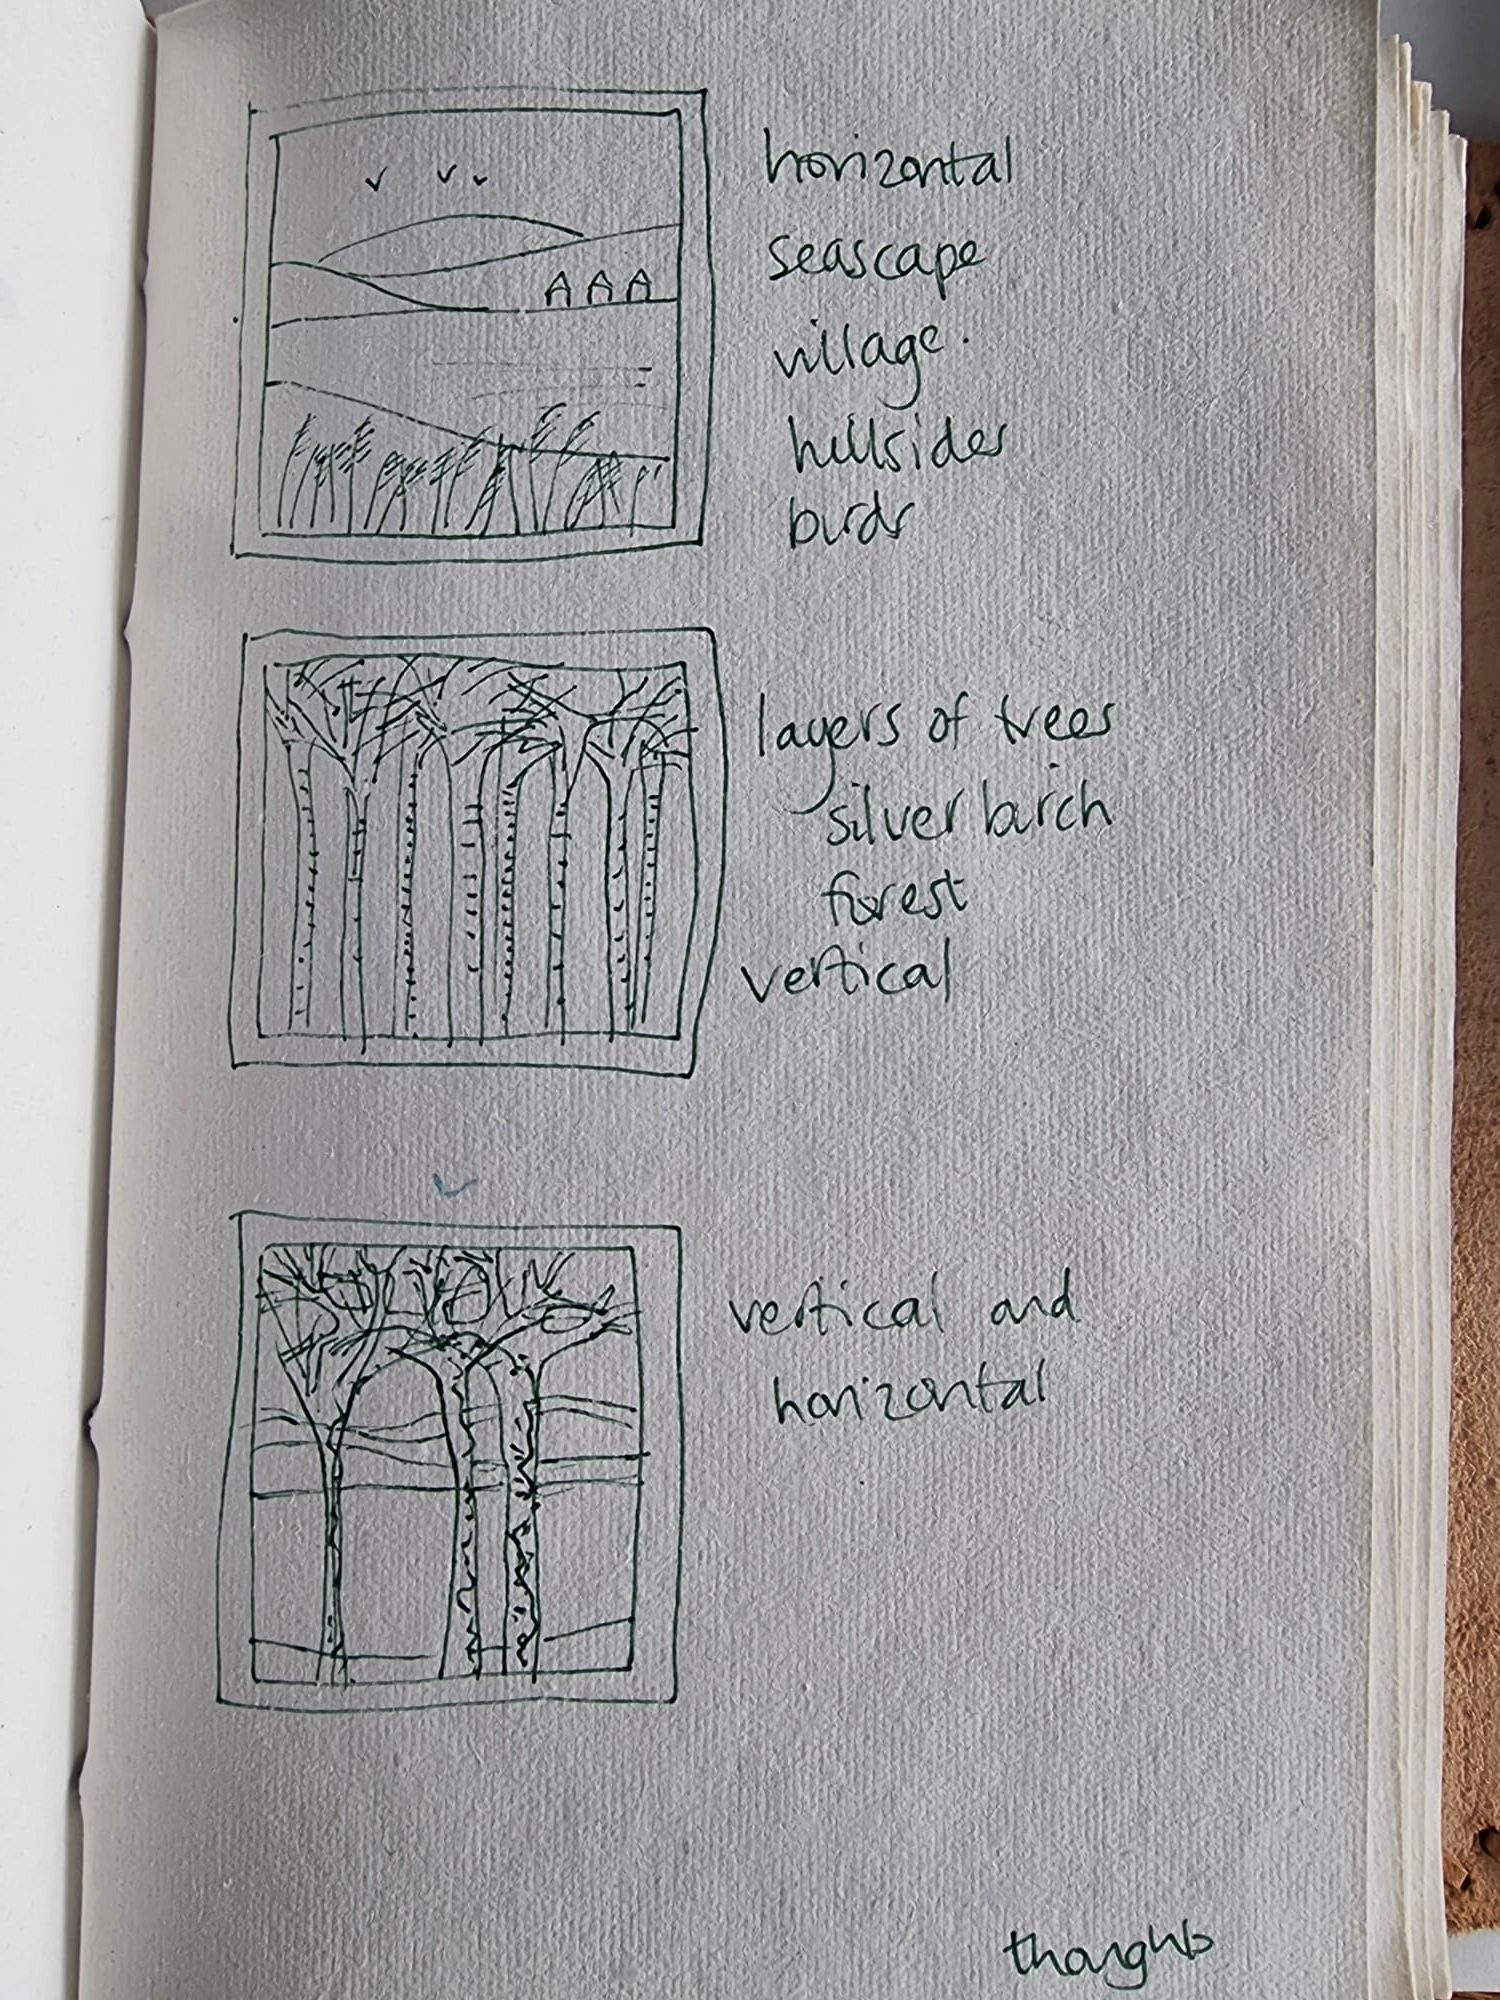 horizontal
seascape
village.
hillsides
birds
layers of trees
silver birch
forest
vertical
vertical and
horizontal
thoughts